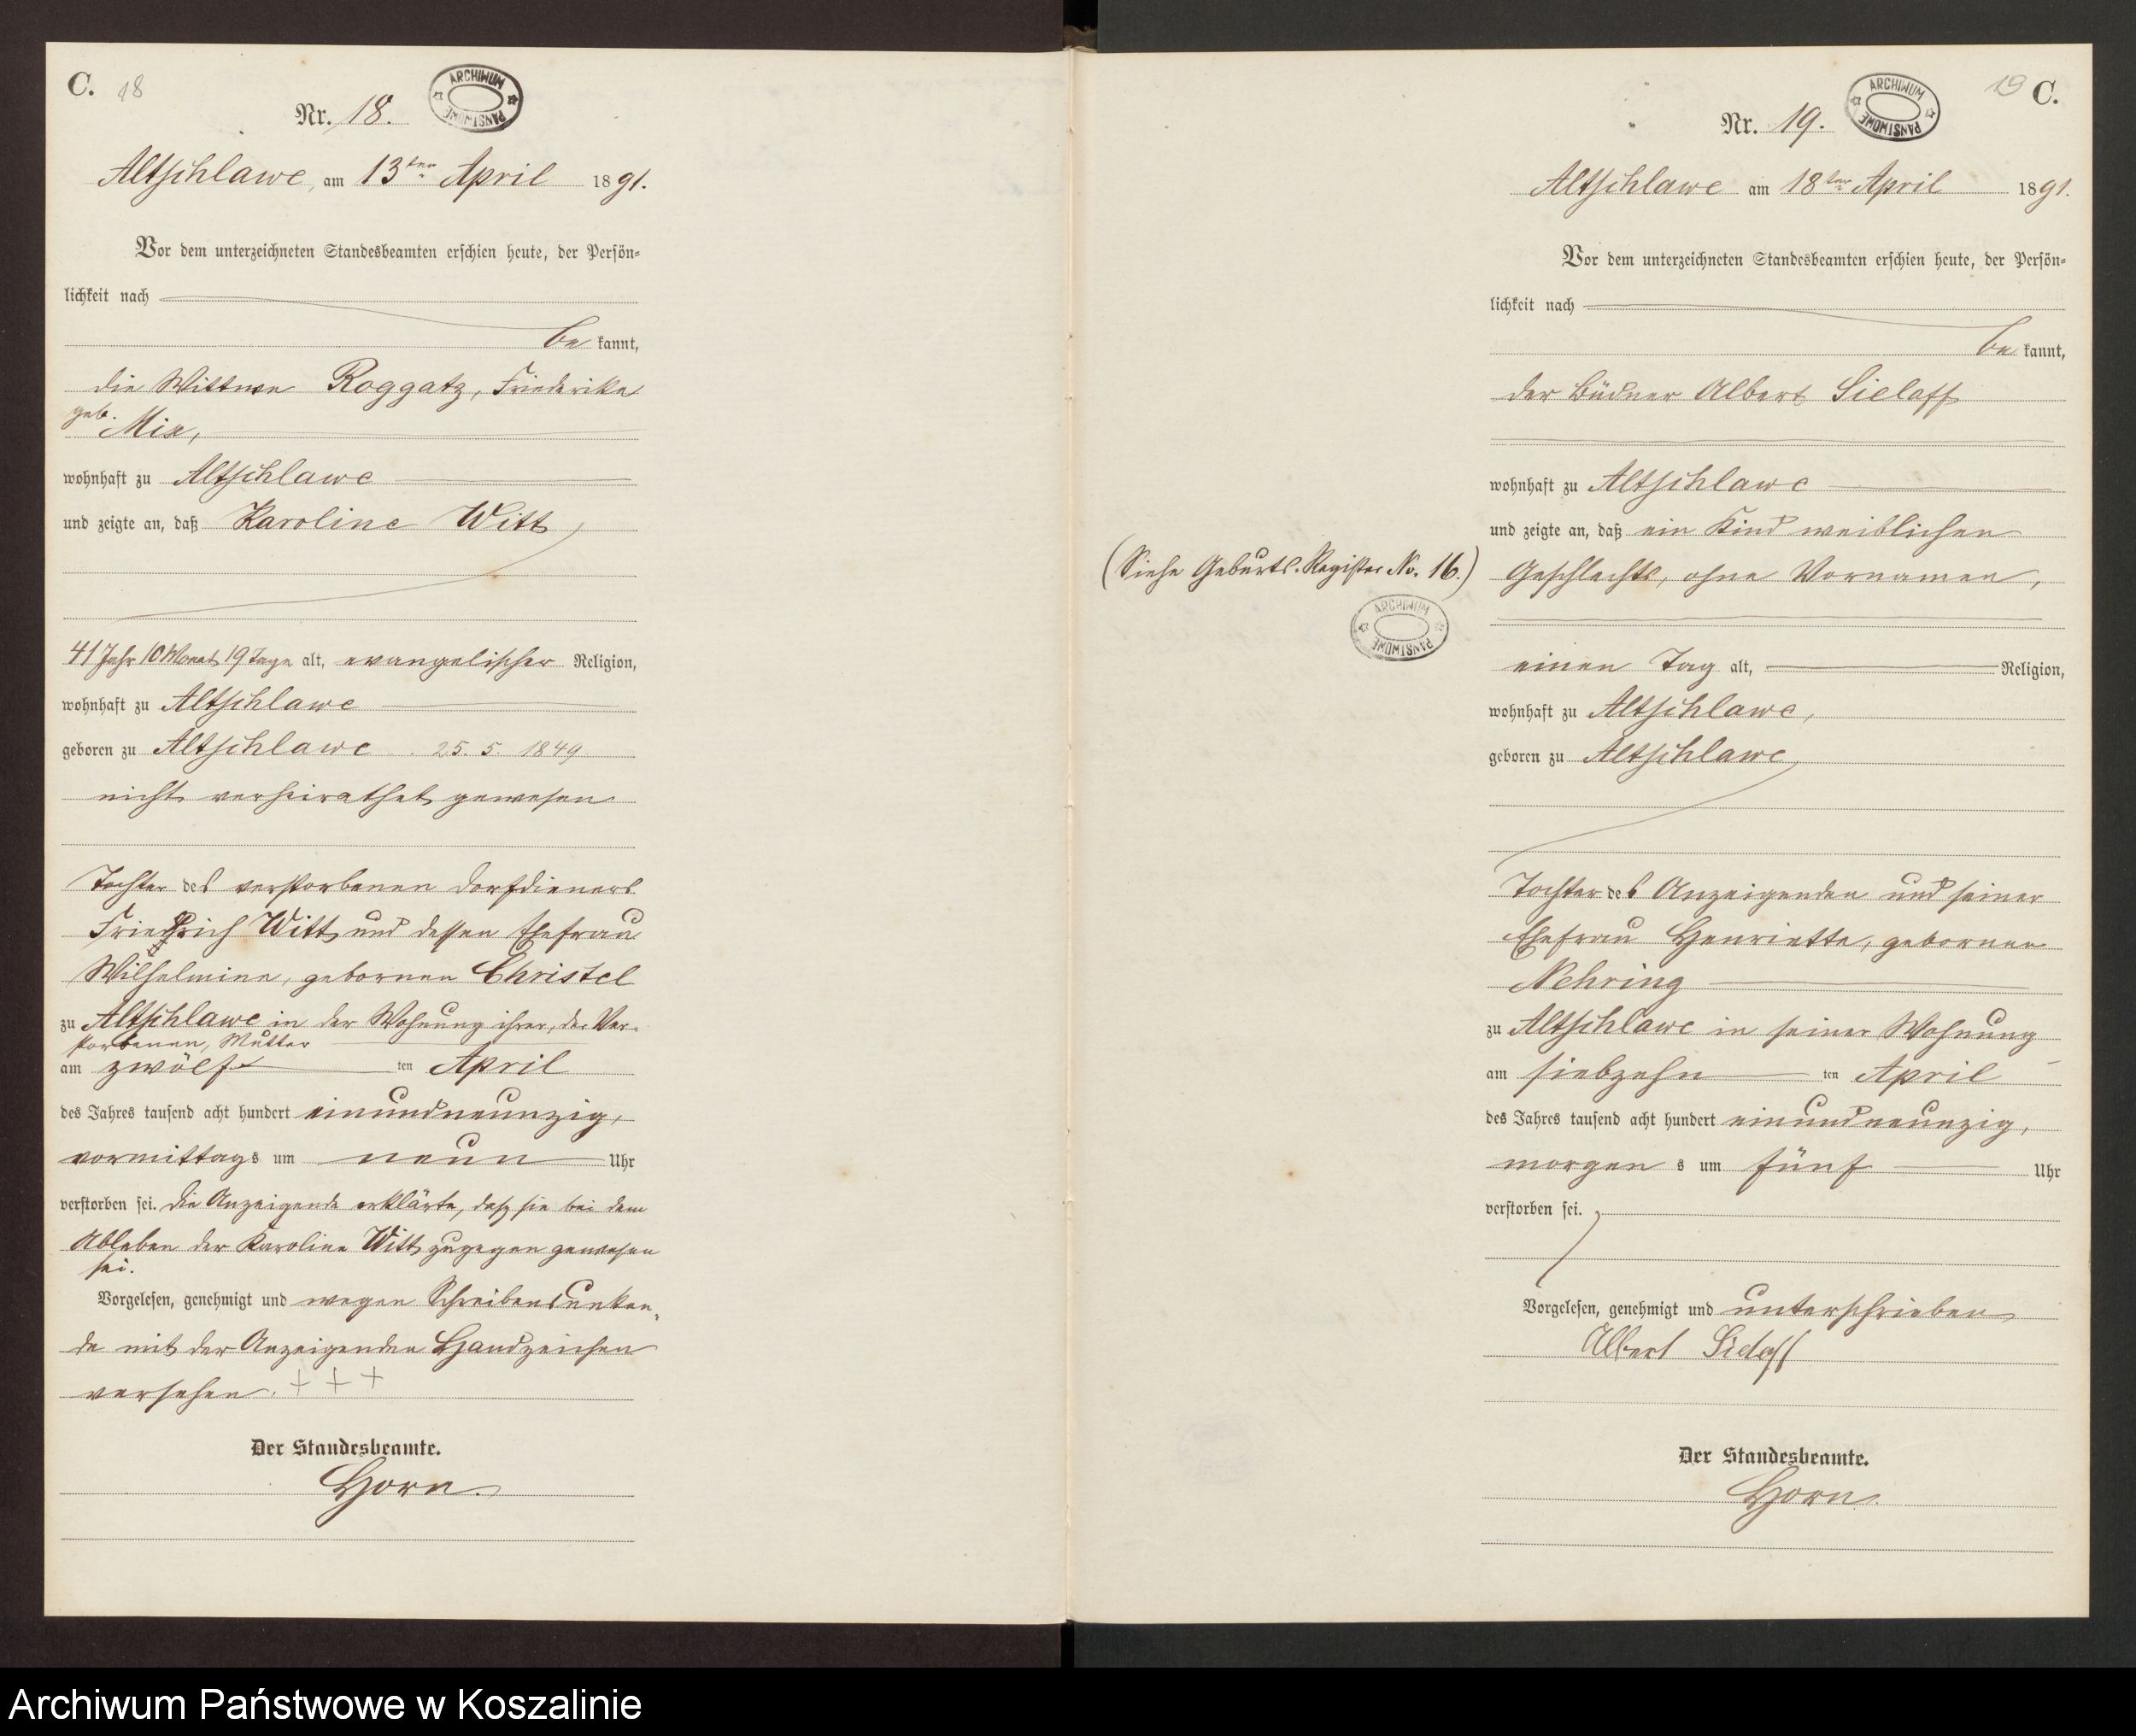 C. 18
ARCHIWUM PAŃSTWOWE
Nr. 18.
Altschlawe, am 13ten April 1891.
Vor dem unterzeichneten Standesbeamten erschien heute, der Persön-
lichkeit nach
be kannt,
die Wittwe Roggatz, Friederike
geb. Mix,
wohnhaft zu Altschlawe
und zeigte an, daß Karoline Witt,
41 Jahr 10 Monat 19 Tage alt, evangelischer Religion,
wohnhaft zu Altschlawe
geboren zu Altschlawe . 25. 5. 1849
nicht verheirathet gewesen
Tochter des verstorbenen Dorfdieners
Friedrich Witt und dessen Ehefrau
Wilhelmine, gebornen Christel
zu Altschlawe in der Wohnung ihrer, der Ver-
storbenen, Mutter
am zwölf ten April
des Jahres tausend acht hundert einundneunzig,
vormittags um neun Uhr
verstorben sei. Die Anzeigende erklärte, daß sie bei dem
Ableben der Karoline Witt zugegen gewesen
sei.
Vorgelesen, genehmigt und wegen Schreibensunkun-
de mit der Anzeigenden Handzeichen
versehen. + + +
Der Standesbeamte.
Horn.
19 C.
ARCHIWUM PAŃSTWOWE
Nr. 19.
Altschlawe am 18ten April 1891.
Vor dem unterzeichneten Standesbeamten erschien heute, der Persön-
lichkeit nach
be kannt,
der Büdner Albert Sielaff
wohnhaft zu Altschlawe
und zeigte an, daß ein Kind weiblichen
(Siehe Geburts-Register No. 16.)
Geschlechts, ohne Vornamen,
ARCHIWUM PAŃSTWOWE
einen Tag alt, Religion,
wohnhaft zu Altschlawe,
geboren zu Altschlawe,
Tochter des Anzeigenden und seiner
Ehefrau Henriette, gebornen
Nehring
zu Altschlawe in seiner Wohnung
am siebzehn ten April
des Jahres tausend acht hundert einundneunzig,
morgen s um fünf Uhr
verstorben sei.
Vorgelesen, genehmigt und unterschrieben
Albert Sielaff
Der Standesbeamte.
Horn.
Archiwum Państwowe w Koszalinie